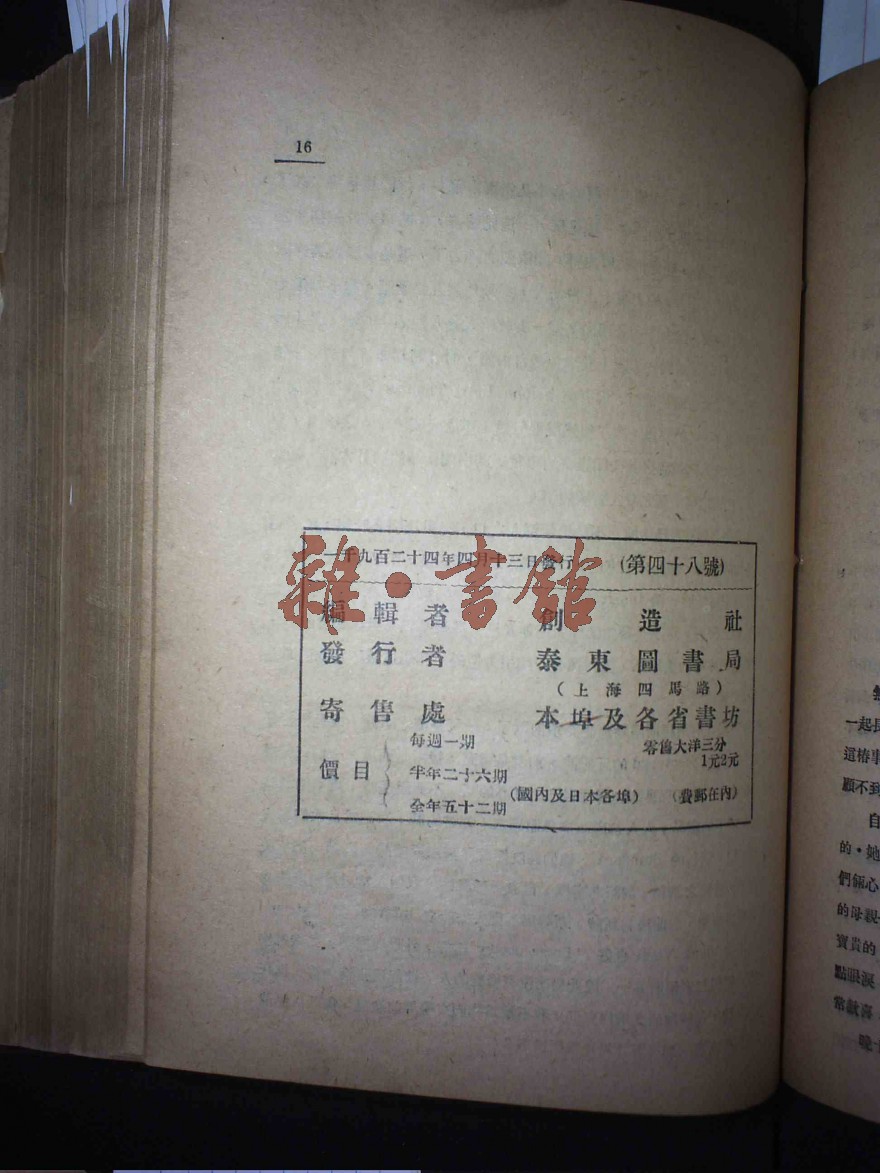 16
一千九百二十四年四月十三日發行 (第四十八號)
雜·書館
編輯者 創造社
發行者 泰東圖書局
(上海四馬路)
寄售處 本埠及各省書坊
每週一期 零售大洋三分
價目 半年二十六期 1元2元
全年五十二期 (國內及日本各埠) (費郵在內)
一起
這樁事
顧不到
自
的·她
們傾心
的母親
寶貴的
點眼淚
常歡喜
晚